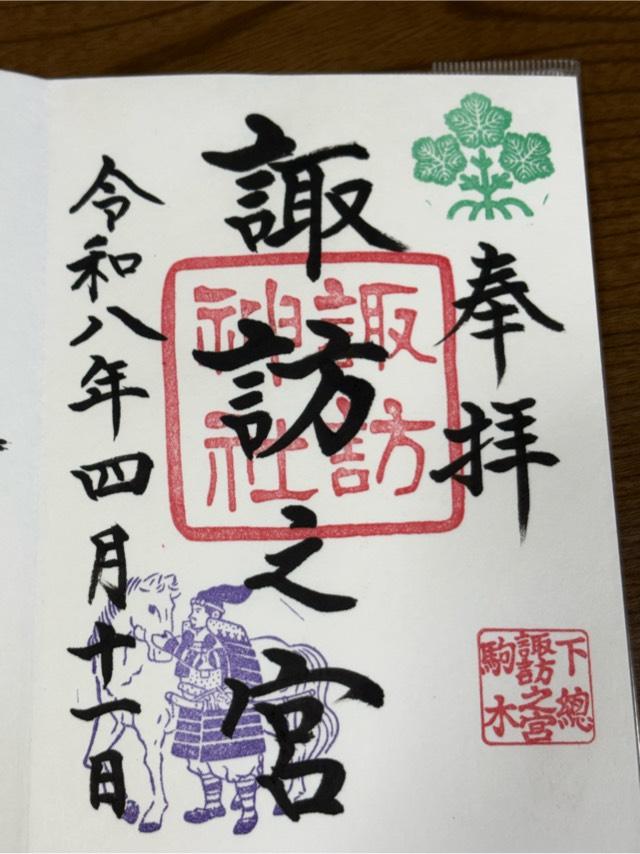 奉拝
諏訪之宮
諏訪
神社
令和八年四月十一日
下總
諏訪之宮
駒木